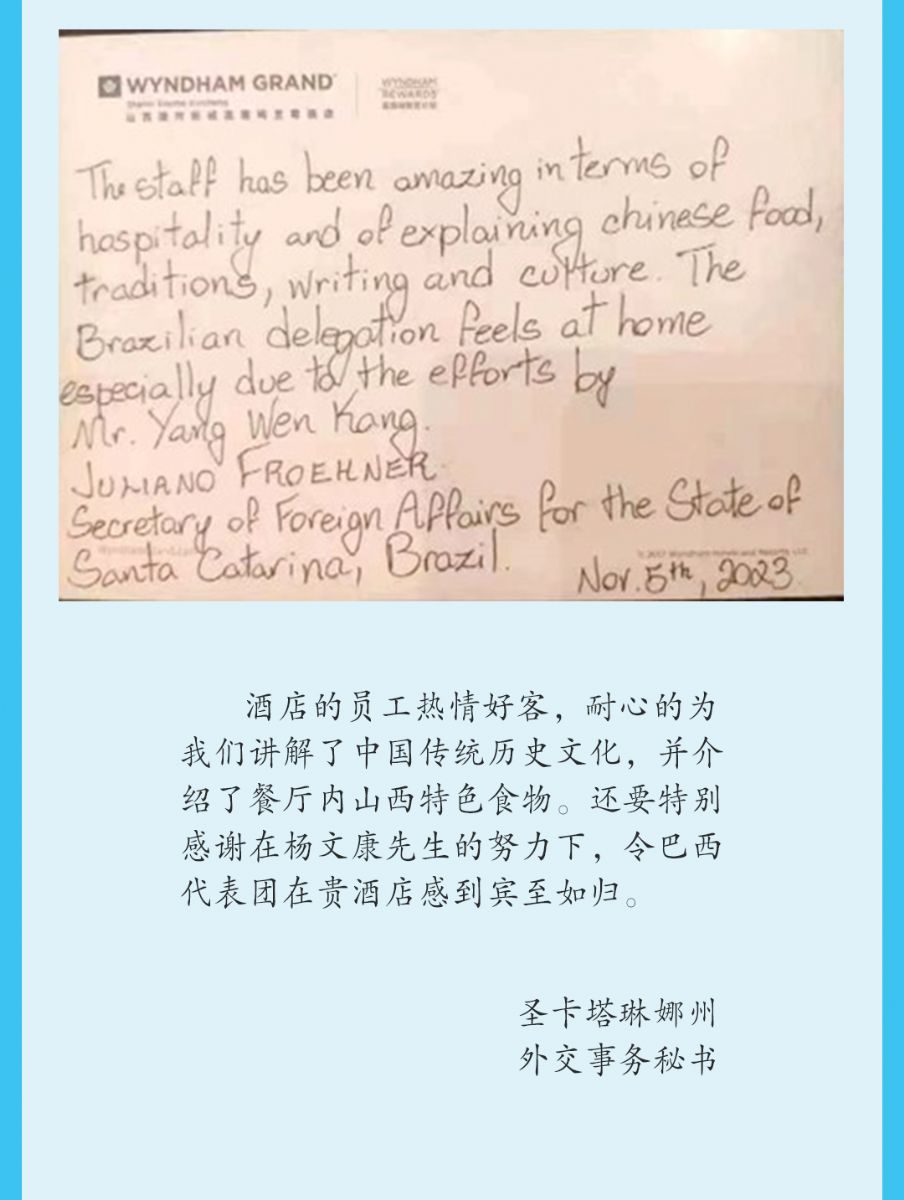 WYNDHAM GRAND
WYNDHAM
REWARDS
The staff has been amazing in terms of
hospitality and of explaining chinese food,
traditions, writing and culture. The
Brazilian delegation feels at home
especially due to the efforts by
Mr. Yang Wen Kang.
JULIANO FROEHNER
Secretary of Foreign Affairs for the State of
Santa Catarina, Brazil.
Nov. 5th, 2023.
酒店的员工热情好客，耐心的为
我们讲解了中国传统历史文化，并介
绍了餐厅内山西特色食物。还要特别
感谢在杨文康先生的努力下，令巴西
代表团在贵酒店感到宾至如归。
圣卡塔琳娜州
外交事务秘书